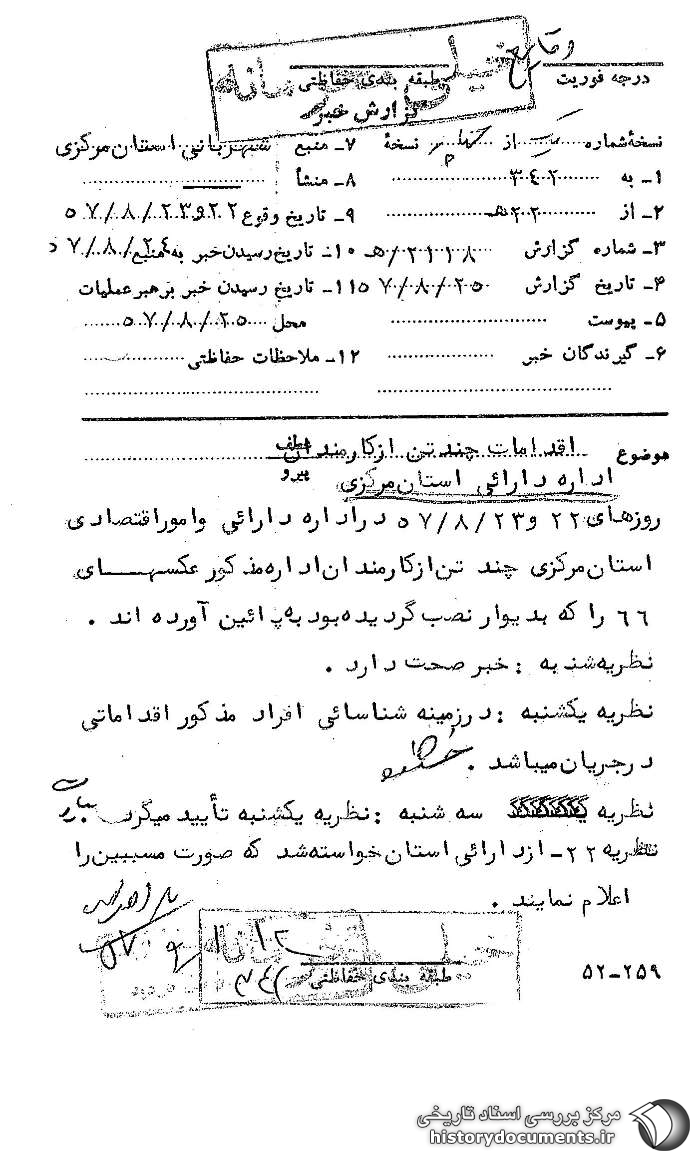 وقایع
خیلی محرمانه
درجه فوریت طبقه بندی حفاظتی
گزارش خبر
نسخهٔ شماره یک از نسخهٔ
۷ـ منبع شهربانی استان مرکزی
۱ـ به ۳۴۲
۸ـ منشأ
۲ـ از ۲۲هـ
۹ـ تاریخ وقوع ۲۲و۵۷/۸/۲۳
۳ـ شماره گزارش ۲۱۱۸/هـ
۱۰ـ تاریخ رسیدن خبر به منبع ۵۷/۸/۲۴
۴ـ تاریخ گزارش ۵۷/۸/۲۵
۱۱ـ تاریخ رسیدن خبر برهبر عملیات
محل ۵۷/۸/۲۵
۵ـ پیوست
۶ـ گیرندگان خبر
۱۲ـ ملاحظات حفاظتی
موضوع اقدامات چند تن ازکارمندان
عطف
پیرو
اداره دارائی استان مرکزی
روزهای ۲۲ و ۵۷/۸/۲۳ دراداره دارائی وامور اقتصادی
استان مرکزی چند تن ازکارمندان اداره مذکور عکسهای
۶۶ را که بدیوار نصب گردیده بود به پائین آورده اند .
نظریه شنبه : خبر صحت دارد .
نظریه یکشنبه : درزمینه شناسائی افراد مذکور اقداماتی
درجریان میباشد .
نظریه سه شنبه : نظریه یکشنبه تأیید میگردد
نظریه ۲۲ـ ازدارائی استان خواسته شد که صورت مسببین را
اعلام نمایند .
خیلی محرمانه
طبقه بندی حفاظتی
۳۴۲
۵۲ـ۲۵۹
مرکز بررسی اسناد تاریخی
historydocuments.ir